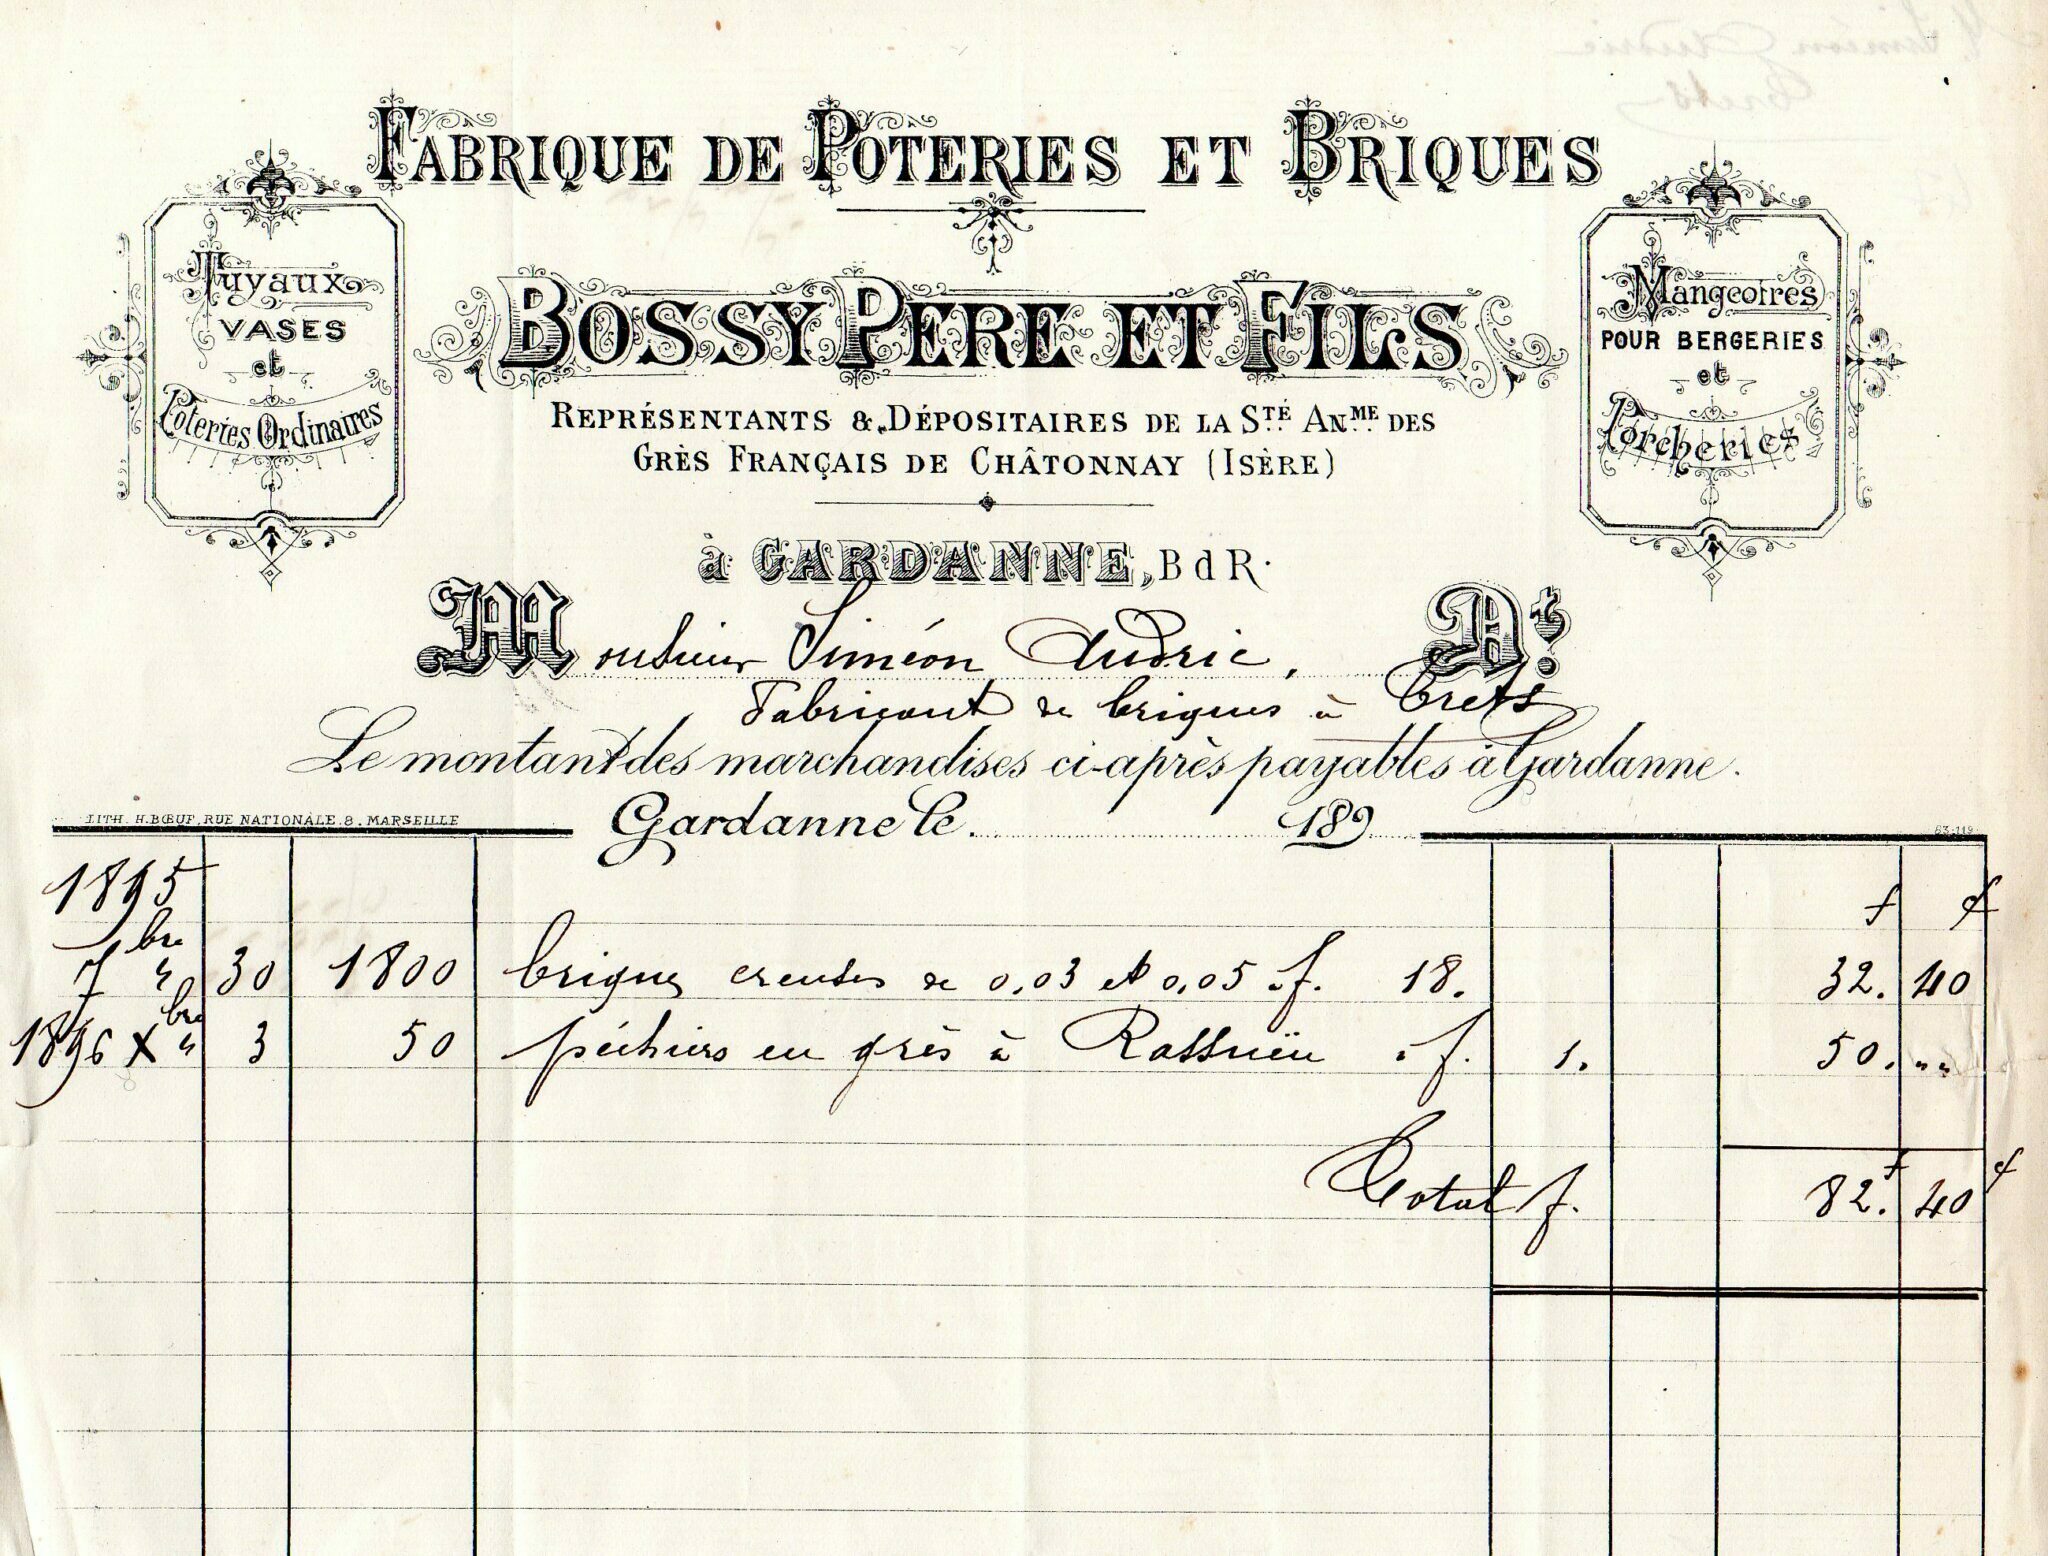 FABRIQUE DE POTERIES ET BRIQUES
Tuyaux
VASES
et
Poteries Ordinaires
BOSSY PERE ET FILS
REPRÉSENTANTS & DÉPOSITAIRES DE LA STÉ ANME DES
GRÈS FRANÇAIS DE CHÂTONNAY (ISÈRE)
Mangeoires
POUR BERGERIES
et
Porcheries
à GARDANNE, B d R.
Monsieur Siméon Audric, Dt.
Fabricant de briques à Trets
Le montant des marchandises ci-après payables à Gardanne.
LITH. H. BŒUF, RUE NATIONALE. 8. MARSEILLE
Gardanne le 189
63.119
1895
f c
7bre " 30 1800 briques creuses de 0,03 et 0,05 . f. 18. 32. 40
1896 Xbre " 3 50 en grès à . f. 1. 50. " "
Total f. 82.f 40c